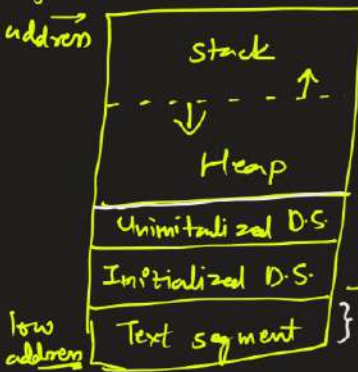 address
Stack
Heap
Uninitialized D.S.
Initialized D.S.
low
address
Text segment